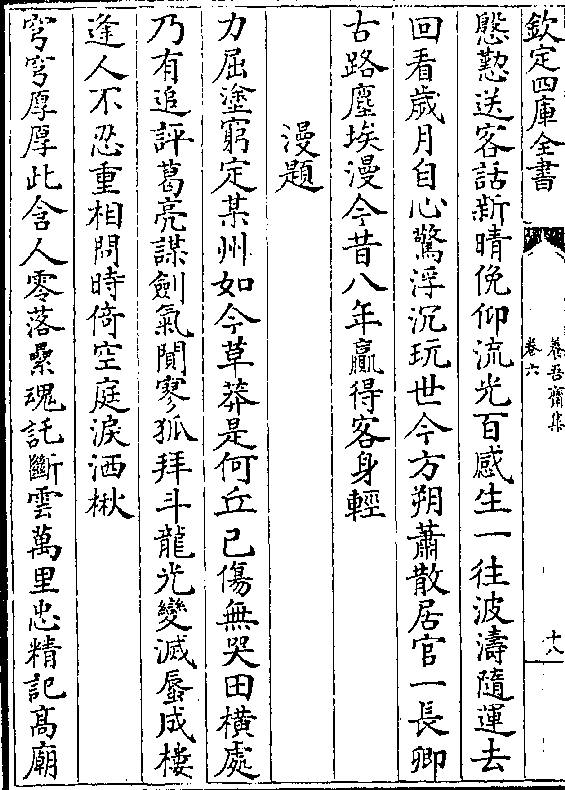 欽定四庫全書
養吾齋集
卷六
十八
慇懃送客話新晴俛仰流光百感生一往波濤隨運去
回看歲月自心驚浮沉玩世今方朔蕭散居官一長卿
古路塵埃漫今昔八年贏得客身輕
漫題
力屈塗窮定某州如今草莽是何丘已傷無哭田横處
乃有追評葛亮謀劍氣閴寥狐拜斗龍光變滅蜃成樓
逢人不忍重相問時倚空庭淚洒楸
穹穹厚厚此含人零落纍魂託斷雲萬里忠精記髙廟